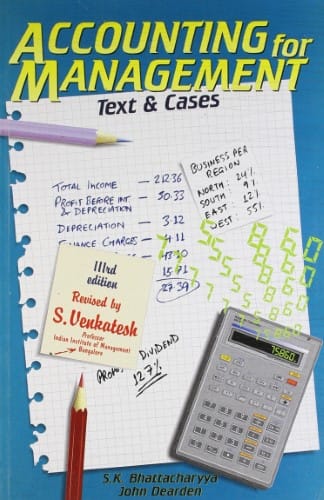 ACCOUNTING for
MANAGEMENT
Text & Cases
TOTAL INCOME — 212.36
PROFIT BEFORE INT — 50.33
& DEPRECIATION
DEPRECIATION — 3.12
FINANCE CHARGES — 4.11
43.10
15.71
27.39
BUSINESS PER
REGION
NORTH : 24%
SOUTH : 9%
EAST : 12%
WEST : 55%
IIIrd
edition
Revised by
S.Venkatesh
Professor
Indian Institute of Management
Bangalore
DIVIDEND
127%
75860
S.K. Bhattacharyya
John Dearden